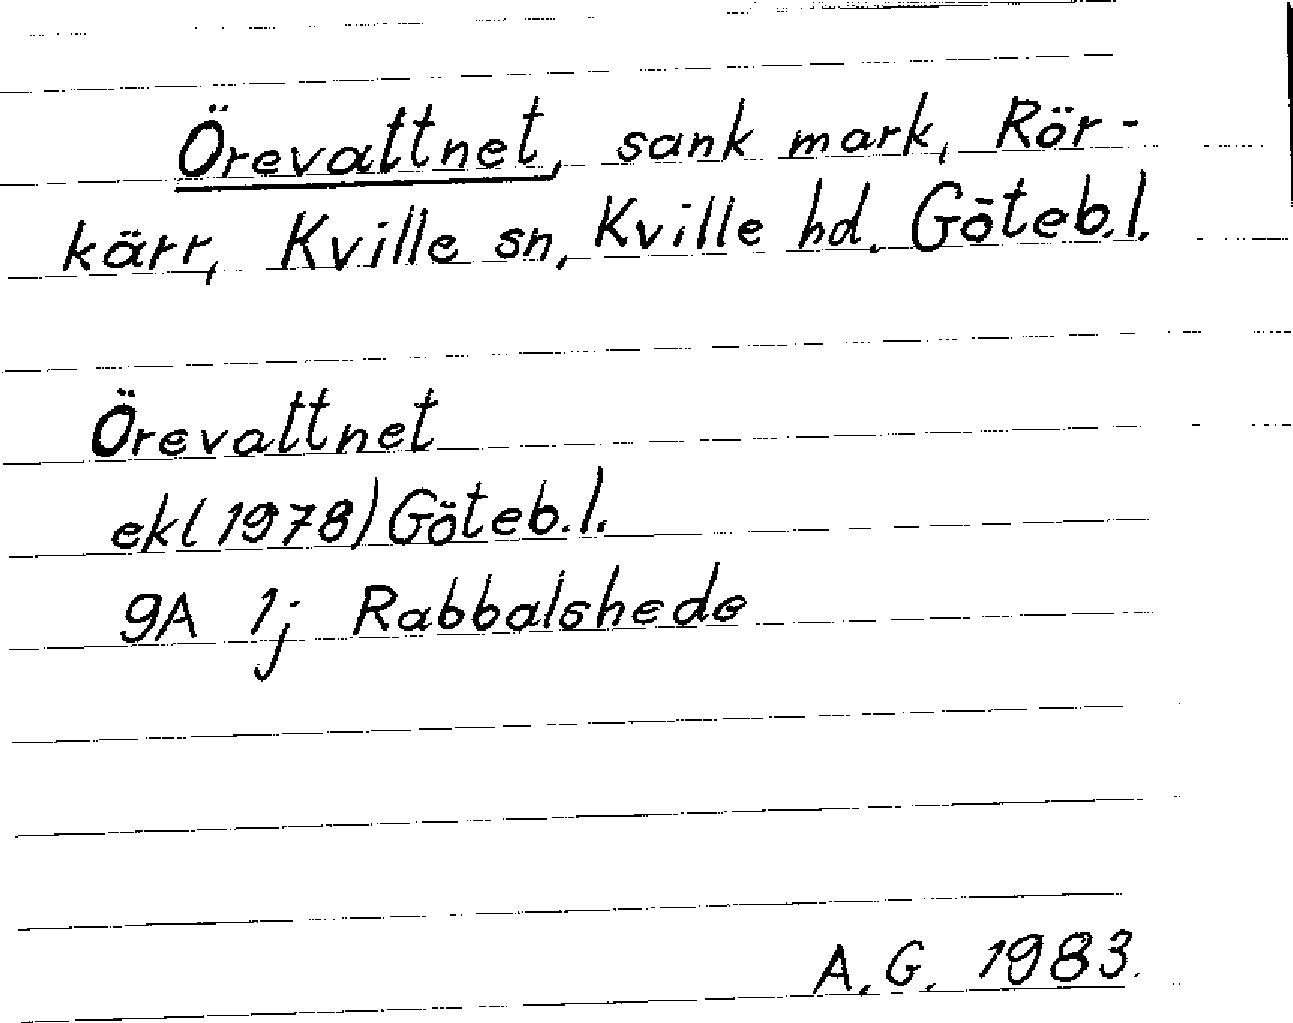 Örevattnet, sank mark, Rör-
kärr, Kville sn, Kville hd. Göteb.l.
Örevattnet
ekl (1978) Göteb.l.
9A 1j Rabbalshede
A.G. 1983.